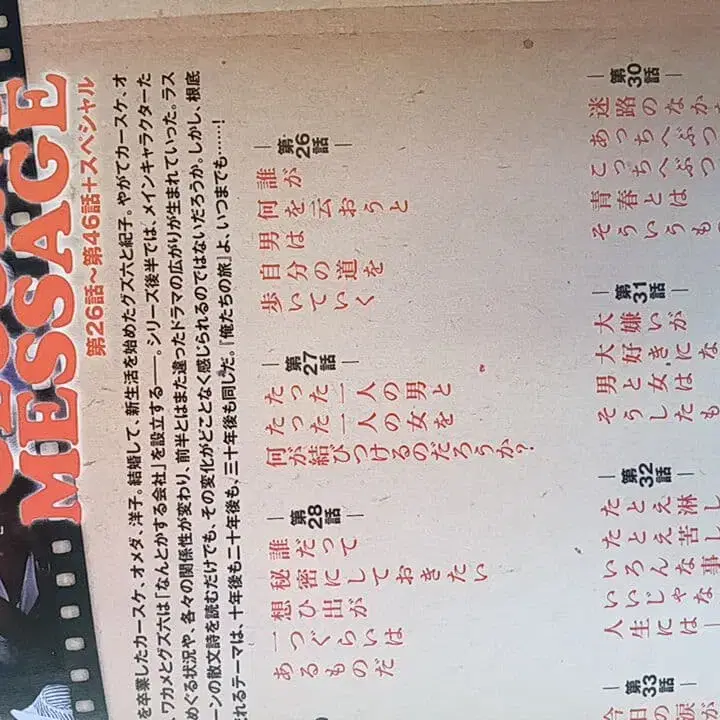 MESSAGE
第26話～第46話＋スペシャル
を卒業したカースケ、オメダ、洋子。結婚して、新生活を始めたグズ六と紀子。やがてカースケ、オ
、ワカメとグズ六は「なんとかする会社」を設立する――。シリーズ後半では、メインキャラクターた
めぐる状況や、各々の関係性が変わり、前半とはまた違ったドラマの広がりが生まれていった。ラス
ーンの散文詩を読むだけでも、その変化がどことなく感じられるのではないだろうか。しかし、根底
れるテーマは、十年後も二十年後も、三十年後も同じだ。「俺たちの旅」よ、いつまでも……！
第26話
誰が
何を云おうと
男は
自分の道を
歩いていく
第27話
たった一人の男と
たった一人の女を
何が結びつけるのだろうか？
第28話
誰だって
秘密にしておきたい
想ひ出が
一つぐらいは
あるものだ
第30話
迷路のなか
あっちへぶつ
こっちへぶつ
青春とは
そういうも
第31話
大嫌いが
大好きにな
男と女は
そうしたも
第32話
たとえ淋し
たとえ苦し
いろんな事
いいじゃな
人生には
第33話
今日の涙が